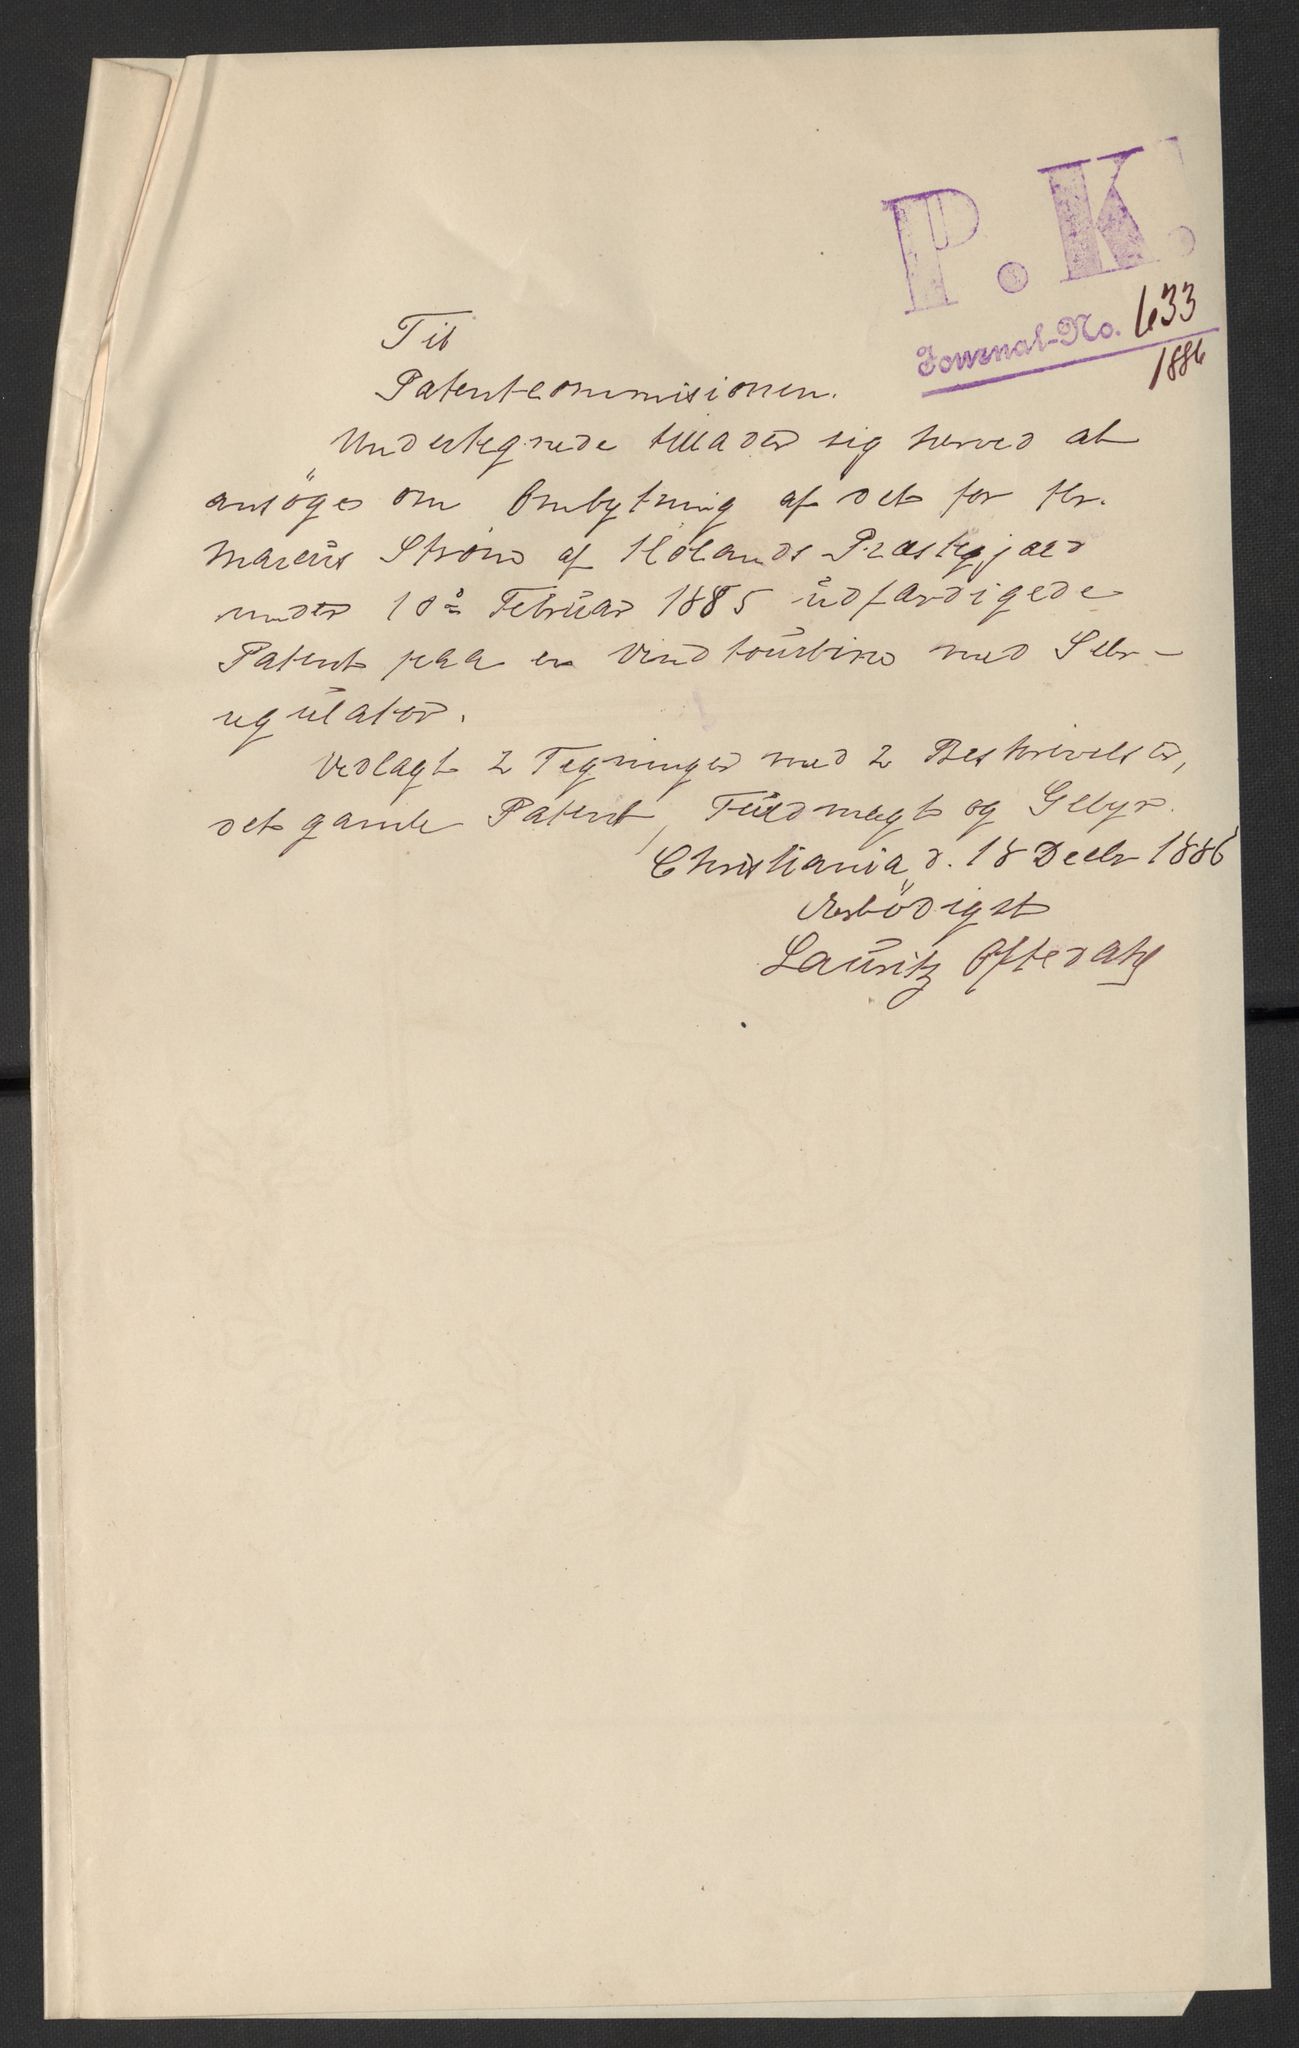 P.K.
Journal-No. 633
1886
Til
Patentcommisionen.
Undertegnede tillader sig herved at
ansöge om Ombytning af det for Hr.
Marcus Ström af Hölands Præstegjæld
under 10de Februar 1885 udfærdigede
Patent paa en Vindtourbine med Selv-
regulator.
Vedlagt 2 Tegninger med 2 Beskrivelser,
det gamle Patent, Fuldmagt og Gebyr.
Christiania d. 18 Decbr 1886
Ærbödigst
Lauritz Oftedahl